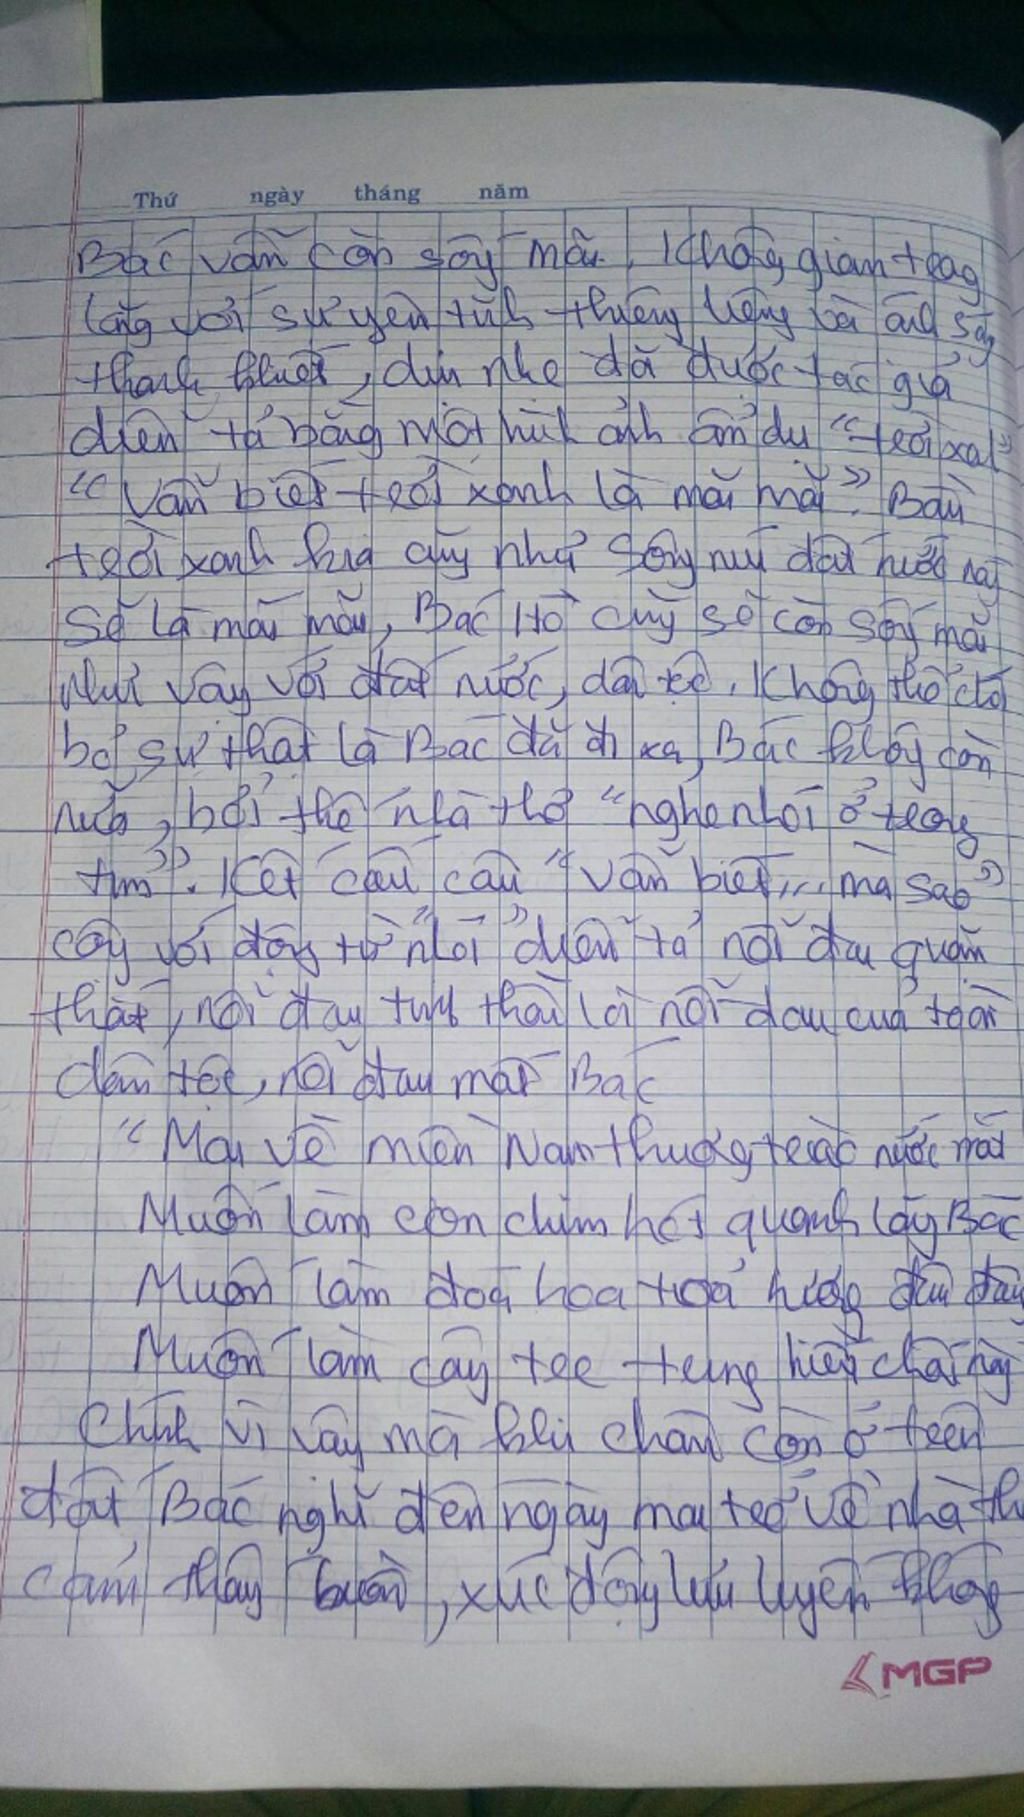 Thứ ngày tháng năm
Bác vẫn còn sống mãi. Không gian trong
lăng với sự yên tĩnh thiêng liêng và ánh sáng
thanh khiết, dịu nhẹ đã được tác giả
diễn tả bằng một hình ảnh ẩn dụ "trời xanh"
"Vẫn biết trời xanh là mãi mãi". Bầu
trời xanh kia cũng như sông núi đất nước này
sẽ là mãi mãi, Bác Hồ cũng sẽ còn sống mãi
như vậy với đất nước, dân tộc. Không thể chối
bỏ sự thật là Bác đã đi xa, Bác không còn
nữa, bởi thế nhà thơ "nghe nhói ở trong
tim". Kết cấu câu "vẫn biết... mà sao"
cùng với động từ "nhói" diễn tả nỗi đau quặn
thắt, nỗi đau tinh thần là nỗi đau của toàn
dân tộc, nỗi đau mất Bác
"Mai về miền Nam thương trào nước mắt
Muốn làm con chim hót quanh lăng Bác
Muốn làm đoá hoa toả hương đâu đây
Muốn làm cây tre trung hiếu chốn này
Chính vì vậy mà khi chân còn ở trên
đất Bắc nghĩ đến ngày mai trở về nhà th
cảm thấy buồn, xúc động lưu luyến không
MGP